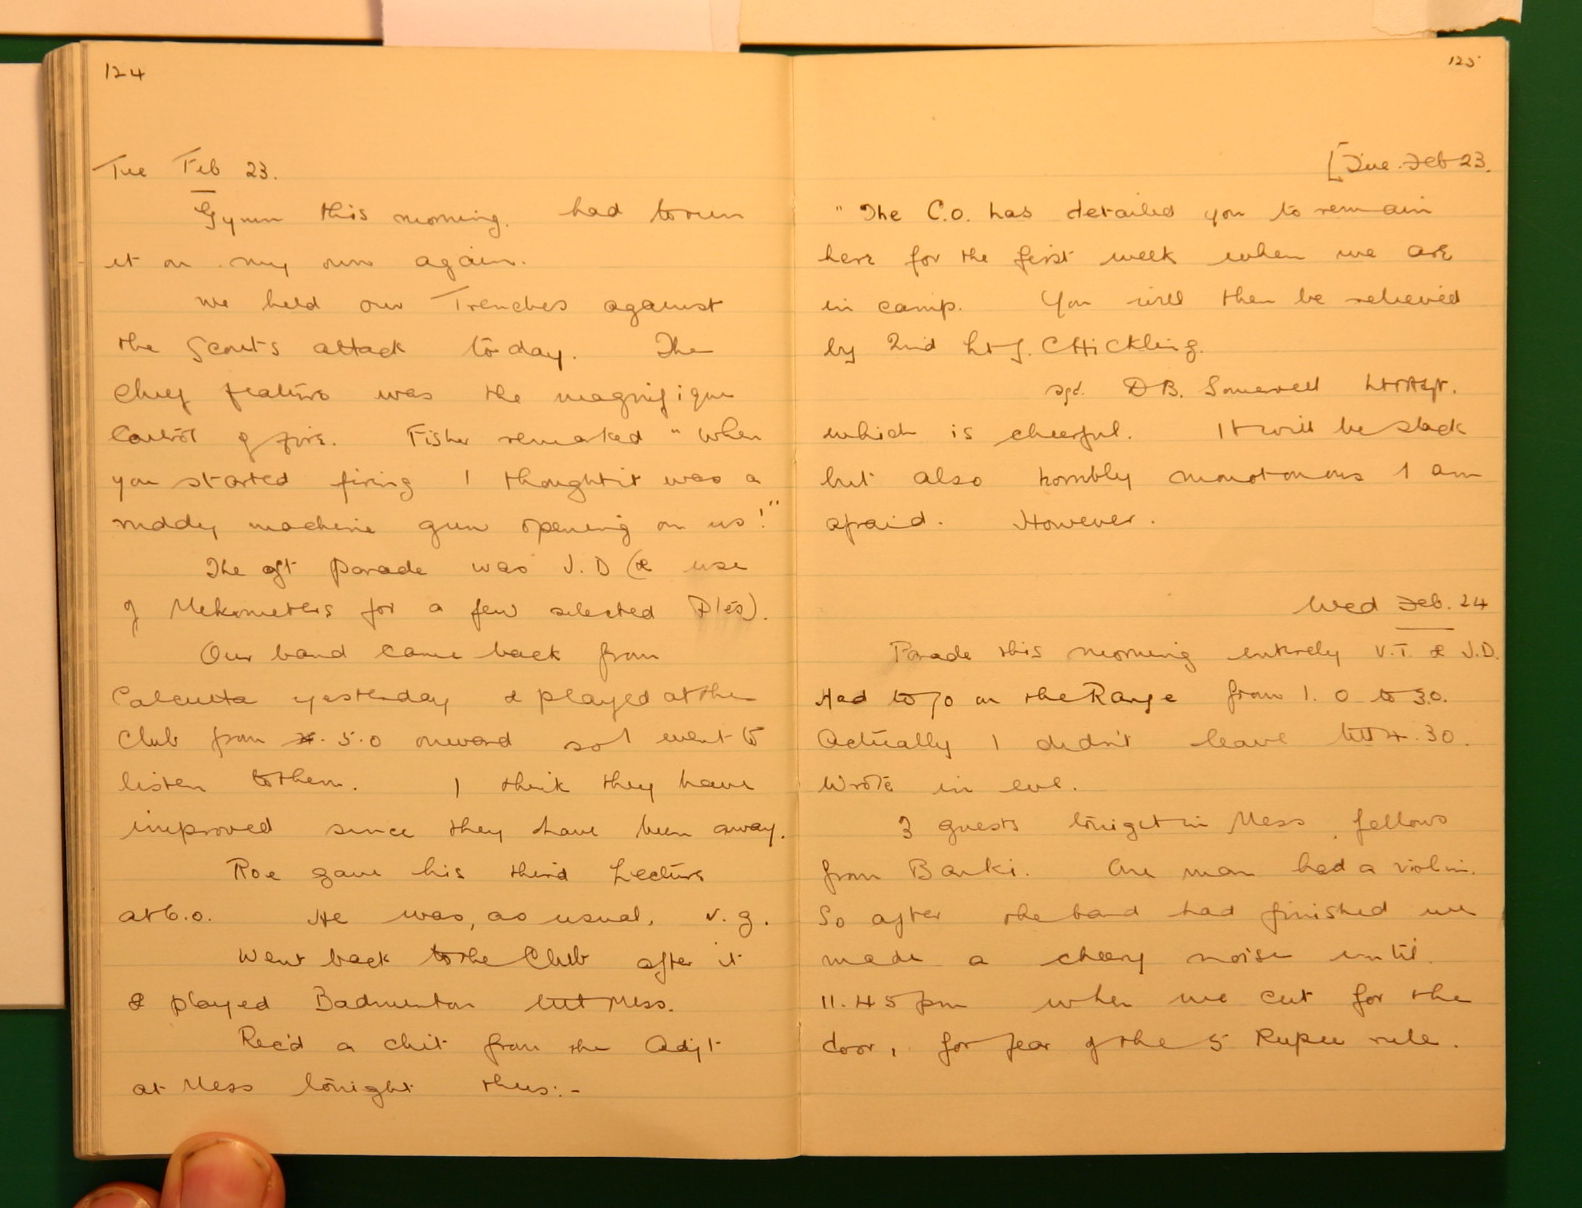 124
Tue Feb 23.
Gymn this morning. had to run
it on my own again.
We held our Trenches against
the Scouts attack to day. The
chief feature was the magnifique
control of fire. Fisher remarked "When
you started firing I thought it was a
ruddy machine gun opening on us!"
The aft parade was J.D (& use
of Mekometers for a few selected Ptes).
Our band came back from
Calcutta yesterday & played at the
Club from 5.0 onward so I went to
listen to them. I think they have
improved since they have been away.
Roe gave his third Lecture
at 6.0. He was, as usual, v.g.
Went back to the Club after it
& played Badminton till Mess.
Rec'd a chit from the Adjt
at Mess tonight thus:-
125
[Tue. Feb 23.
"The C.O. has detailed you to remain
here for the first week when we are
in camp. You will then be relieved
by 2nd Lt J. C Hickling.
sgd. D B. Somervell Lt A/Adjt.
which is cheerful. It will be slack
but also horribly monotonous I am
afraid. However.
Wed Feb. 24
Parade this morning entirely V.T. & J.D.
Had to go on the Range from 1. 0 to 3.0.
Actually I didn't leave till 4.30.
Wrote in eve.
3 guests tonight in Mess, fellows
from Barki. One man had a violin.
So after the band had finished we
made a cheery noise until
11.45 pm when we cut for the
door, for fear of the 5 Rupee rule.